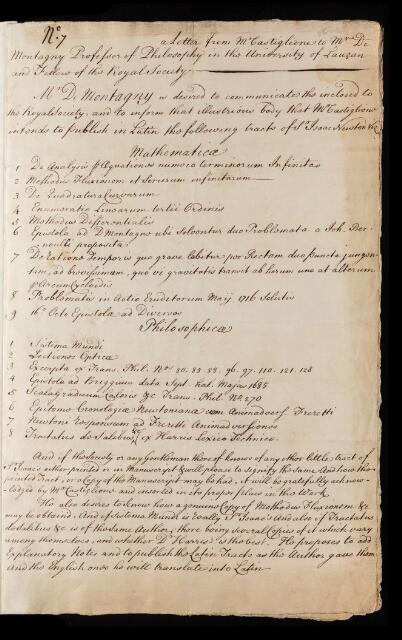 No. 7
a Letter from Mr Castiglione to Mr De
Montagny Professor of Philosophy in the University of Lauzan
and Fellow of the Royal Society
Mr De Montagny is desired to communicate the inclosed to
the Royal Society, and to inform that illustrious body that Mr Castiglione
intends to publish in Latin the following tracts of Sr Isaac Newton Viz
Mathematica
1 De Analysi p Æquationes numero terminorum Infinitas
2 Methodus Fluxionum et Serierum infinitarum
3 De Quadratura Curvarum
4 Enumeratio Linearum tertii Ordinis
5 Methodus Differentialis
6 Epistola ad D Montague ubi Solvuntur duo Problemata a Joh. Ber-
noulli proposita
7 De ratione Temporis quo grave labitur per Rectam duo puncta jungen-
tem, ad brevissimam, quo vi gravitatis transit ab horum uno at alterum
p arcum Cycloidis
8 Problematis in Actis Eruditorum Maij 1716 Solutio
9 16. Octo Epistola ad Diversos
Philosophica
1 Sistema Mundi
2 Lectiones Optica
3 Excerpta ex Trans. Phil. Nos 80. 83. 88. 96. 97. 110. 121. 128
4 Epistola ad Briggium data Sept. Kal. Majas 1685
5 Scala graduum Caloris &c Trans. Phil No. 270
6 Epitome Cronologia Newtoniana cum Animadvers Freretti
7 Newtoni Responsum ad Freretti Animadversiones
8 Tractatus de Salibus &c ex Harris Lexico Technico.
And if the Society or any Gentleman thereof knows of any other little tract of
Sr Isaacs either printed or in Manuscript & will please to signify the same And how the
printed Tract, or a Copy of the Manuscript may be had, it will be gratefully acknow-
ledged by Mr Castiglione and inserted in its proper place in the Work
He also desires to know how a genuine Copy of Methodus Fluxionum &c
may be obtained. And if Sistema Mundi is really Sr Isaacs And also if Tractatus
de Salibus &c is of the same Author, there being several Copies of it which vary
among themselves, and whether Dr Harris's is the best. He proposes to add
Explanatory Notes and to publish the Latin Tracts as the Author gave them
And the English ones he will translate into Latin